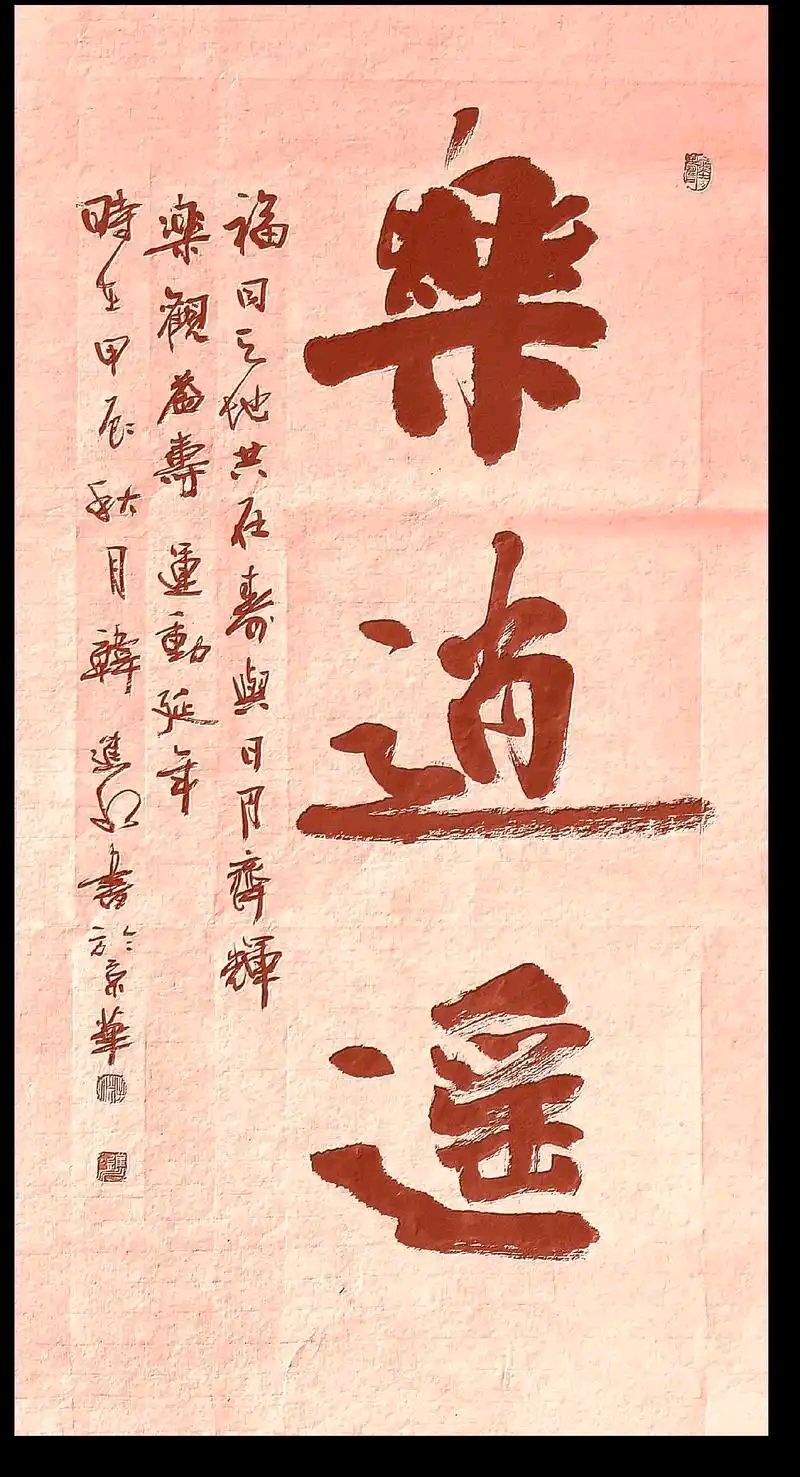 樂逍遥
福同天地共在壽與日月齊輝
樂觀益壽 運動延年
時在甲辰秋月韓書於京華